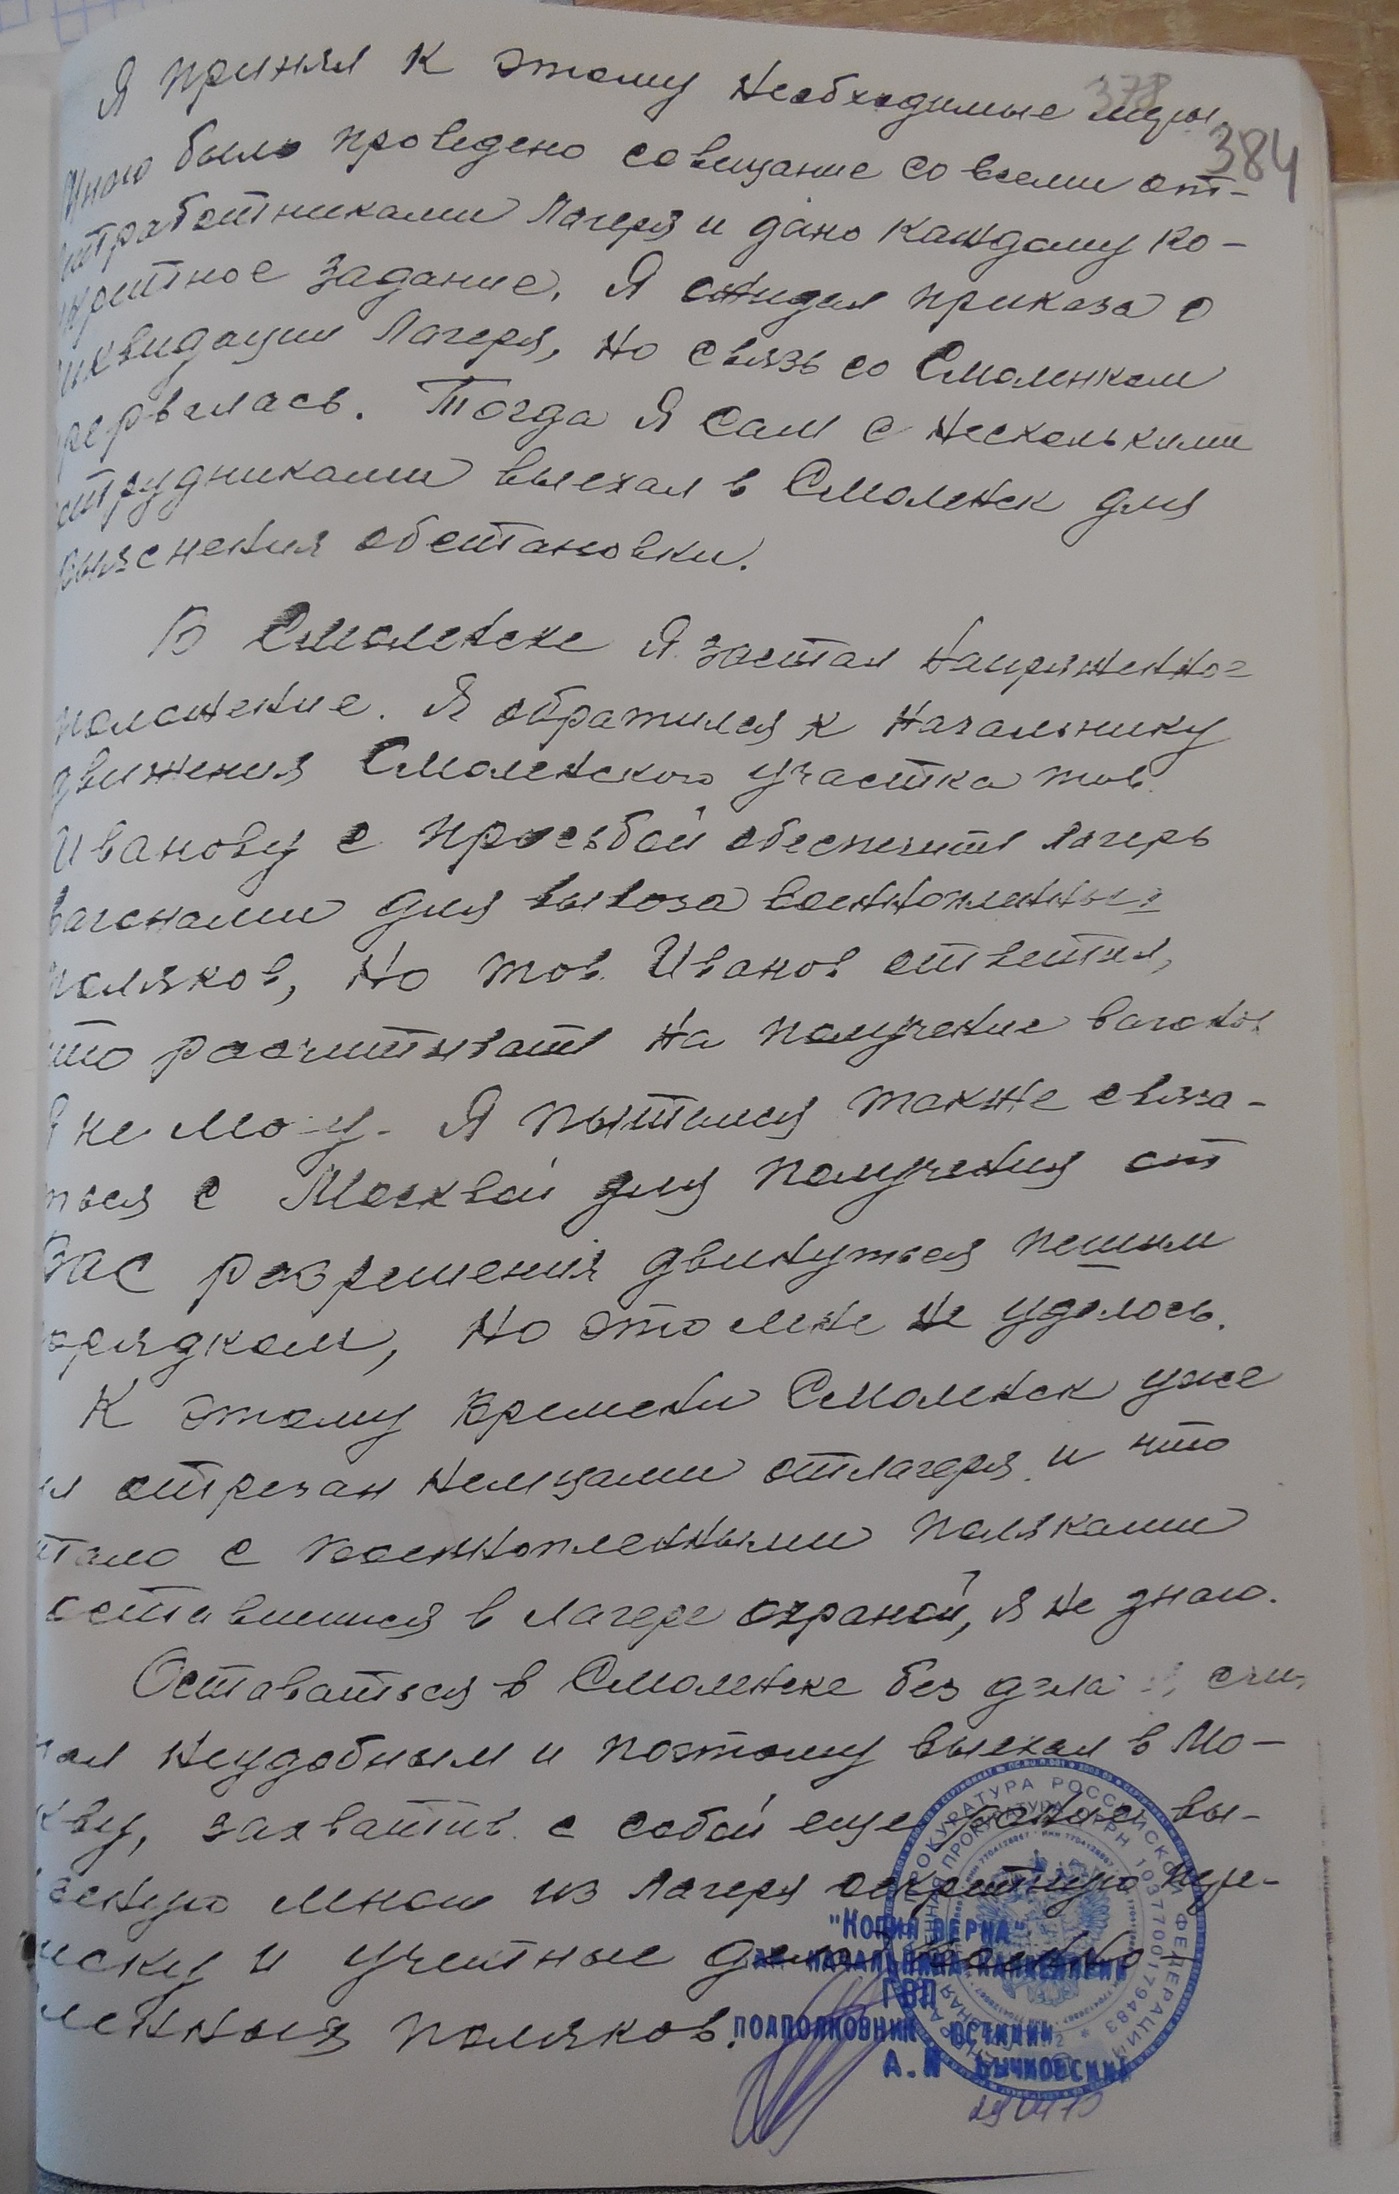 378
384
Я принял к этому необходимые меры.
Мною было проведено совещание со всеми от-
ветработниками лагеря и дано каждому ко-
нкретное задание. Я ожидал приказа о
ликвидации лагеря, но связь со Смоленком
прервалась. Тогда я сам с несколькими
сотрудниками выехал в Смоленск для
выяснения обстановки.
В Смоленске я застал напряженное
положение. Я обратился к начальнику
движения Смоленского участка тов.
Иванову с просьбой обеспечить лагерь
вагонами для вывоза военнопленных
поляков, но тов. Иванов ответил,
что рассчитывать на получение вагонов
я не могу. Я пытался также связа-
ться с Москвой для получения от
Вас разрешения двинуться пешим
порядком, но это мне не удалось.
К этому времени Смоленск уже
был отрезан немцами от лагеря и что
стало с военнопленными поляками
оставшимися в лагере охраной, я не знаю.
Оставаться в Смоленске без дела я счи-
тал неудобным и поэтому выехал в Мо-
скву, захватив с собой еще ранее вы-
везенную мною из лагеря секретную пере-
писку и учетные дела военно
пленных поляков.
"КОПИЯ ВЕРНА"
НАЧАЛЬНИКА КАНЦЕЛЯРИИ
ГВП
ПОДПОЛКОВНИК ЮСТИЦИИ
А.И БЫЧКОВСКИЙ
ПРОКУРАТУРА РОССИЙСКОЙ ФЕДЕРАЦИИ
ОГРН 1037700179483
ИНН 7704128067